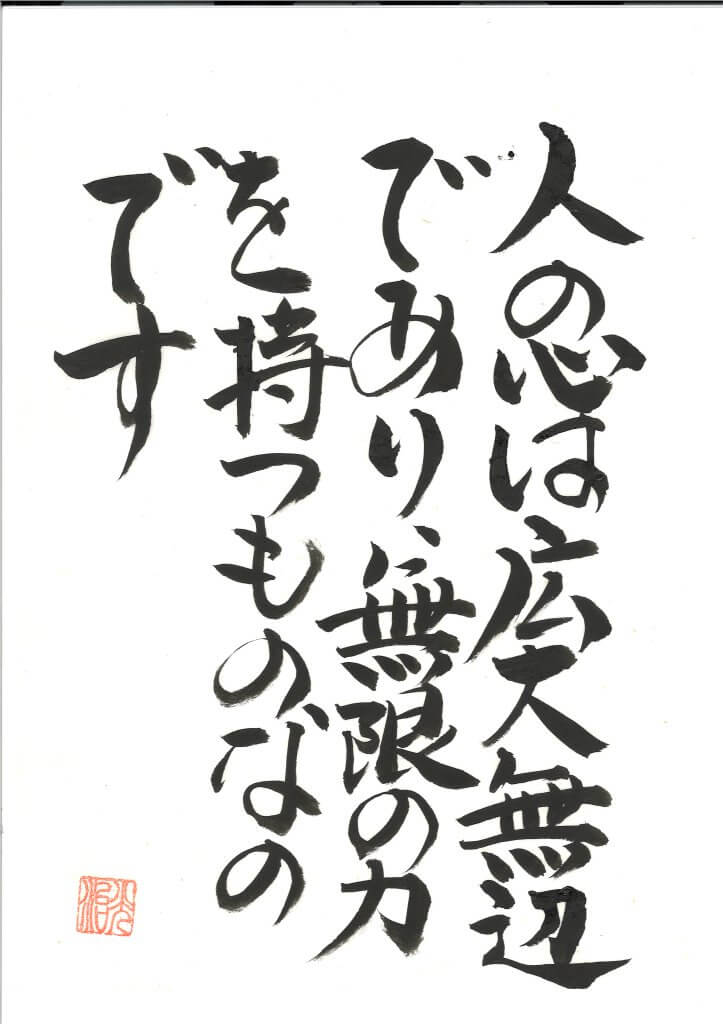 人の心は広大無辺
であり、無限の力
を持つものなの
です